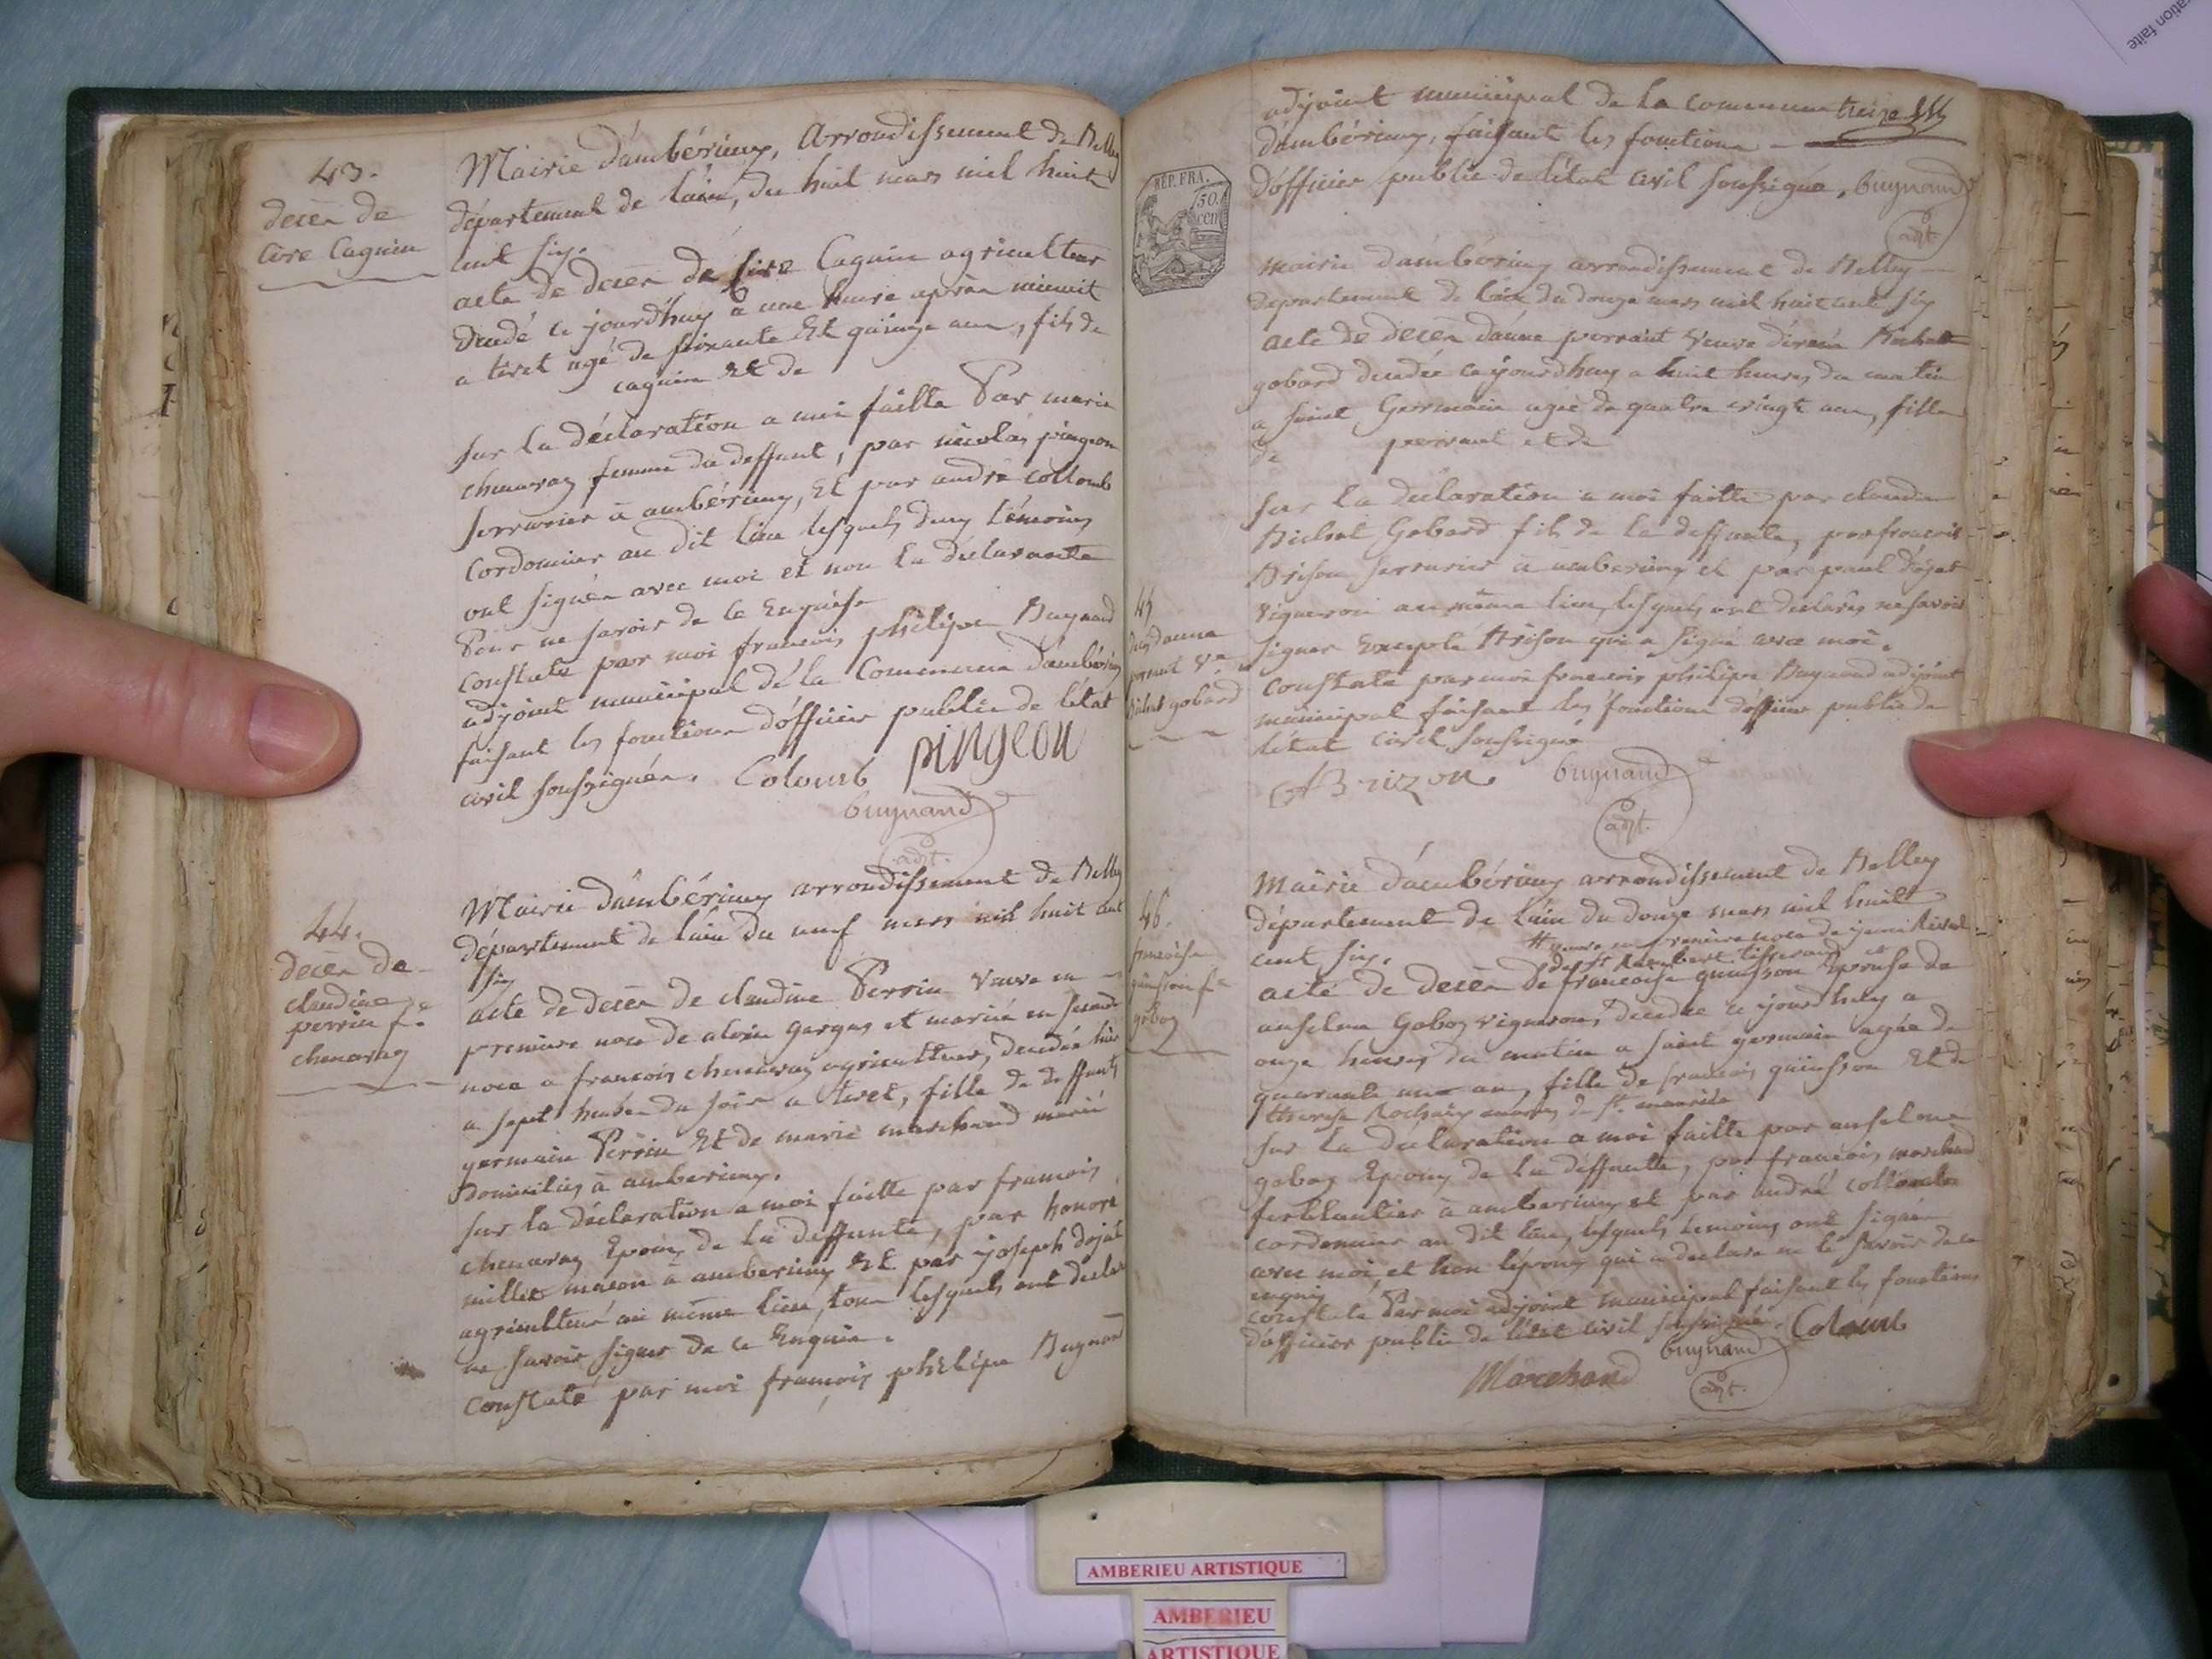 43.
decès de
Cire Caguin
Mairie d'ambérieux, Arrondissement de Belley
département de l'ain, du huit mars mil huit
cent six.
acte de decès de Cire Caguin agriculteur
decedé ce jourd'huy a une heure après minuit
a tiret agé de soixante et quinze ans, fils de
caguin et de
sur la déclaration a moi faitte Par marie
chenavaz femme du deffunt, par nicolas pingeon
serrurier à ambérieux, et par andré collomb
Cordonnier au dit lieu lesquels deux témoins
ont signés avec moi et non la déclarante
Pour ne savoir de ce Enquise
Constaté par moi francois philipe Buynand
adjoint municipal de la Commune d'ambérieux
faisant les fonctions d'officier public de l'état
civil soussignés. Colomb pingeon
buynand
adjt.
44.
decès de
claudine
perrin fe
chenavaz
Mairie d'ambérieux arrondissement de Belley
département de l'ain du neuf mars mil huit cent
six
acte de decès de claudine Perrin veuve en
premiere noce de alexin gargas et mariée en seconde
noce a francois chenavaz agriculteur, decedée hier
a sept heures du soir a tiret, fille de deffunts
germain Perrin Et de marie marchand mariés
domiciliés à ambérieux.
sur la déclaration a moi faitte par francois
chenavaz Epoux de la deffunte, par honoré
millet maçon à ambérieux Et par joseph dojat
agriculteur au même lieu, tous lesquels ont declaré
ne savoir signer de ce Enquis.
Constaté par moi françois philipe Buynand
adjoint municipal de la commune treize
d'ambérieux, faisant les fonctions
d'officier public de l'état civil soussigné, buynand
adjt.
REP. FRA.
50.
cen
45
decès d'anne
perraut Ve
Bichat gobard
Mairie d'ambérieux arrondissement de Belley
departement de l'ain du douze mars mil huit cent six
acte de decès d'anne perraut veuve Bichat
gobard decedée ce jourd'huy a huit heures du matin
a saint Germain agée de quatre vingt ans, fille
de perraut et de
sur la declaration a moi faitte par claude
Bichat Gobard fils de la deffunte, par francois
Brison serrurier à ambérieux et par paul dojat
vigneron au même lieu, lesquels ont declarés ne savoir
signer Excepté Brison qui a signé avec moi.
Constaté par moi francois philipe Buynand adjoint
municipal faisant les fonctions d'officier public de
l'état civil soussigné
Brizon buynand
adjt.
46.
francoise
quinson fe
goboz
Mairie d'ambérieux arrondissement de Belley
département de l'ain du douze mars mil huit
cent six.
acte de decès de francoise quinsson Epouse de
anselme Goboz vigneron, decedée ce jourd'huy a
onze heures du matin a saint germain agée de
quarante un ans, fille de francois quinsson Et de
therese Rochaix
sur la declaration a moi faitte par anselme
goboz Epoux de la deffunte, par francois marchand
ferblantier à ambérieux et par andré collomb
cordonnier au dit lieu, lesquels temoins ont signés
avec moi, et non l'époux qui a declaré ne le savoir de ce
enquis
constaté Par moi adjoint municipal faisant les fonctions
d'officier public de l'état civil soussigné. Colomb
buynand
Marchand adjt.
AMBERIEU ARTISTIQUE
AMBERIEU
ARTISTIQUE